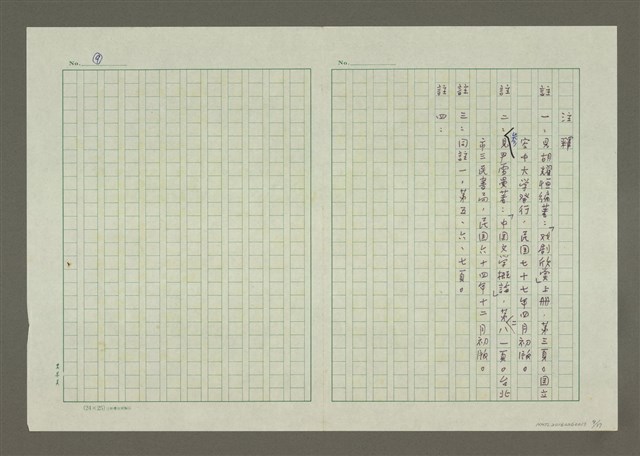 No.
注釋
註一：見胡耀恒編著：「戏剧欣賞」上册，第三頁。国立
空中大学發行，民国七十七年四月初版。
註二：見尹雪曼著：「中国文学概論」，第八一頁。台北
市三民書局，民国六十四年十二月初版。
註三：同註一，第五、六、七頁。
註四：
No. ⑨
(24×25)